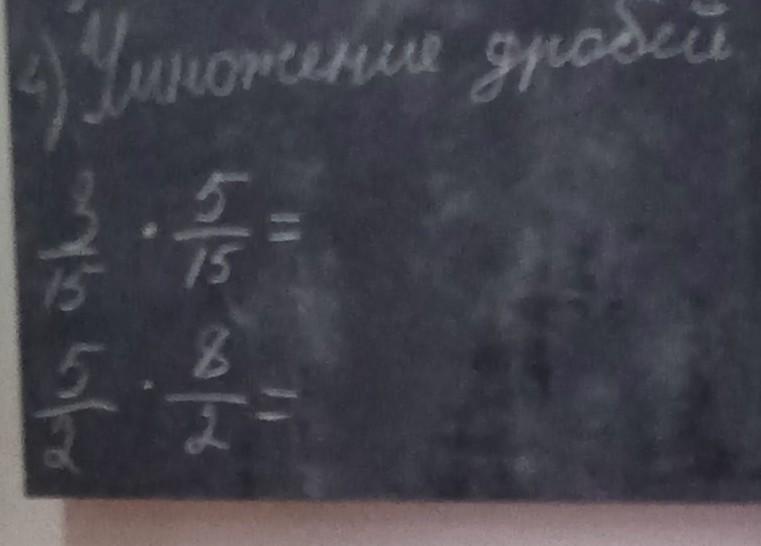 4) Умножение дробей
3/15 · 5/15 =
5/2 · 8/2 =